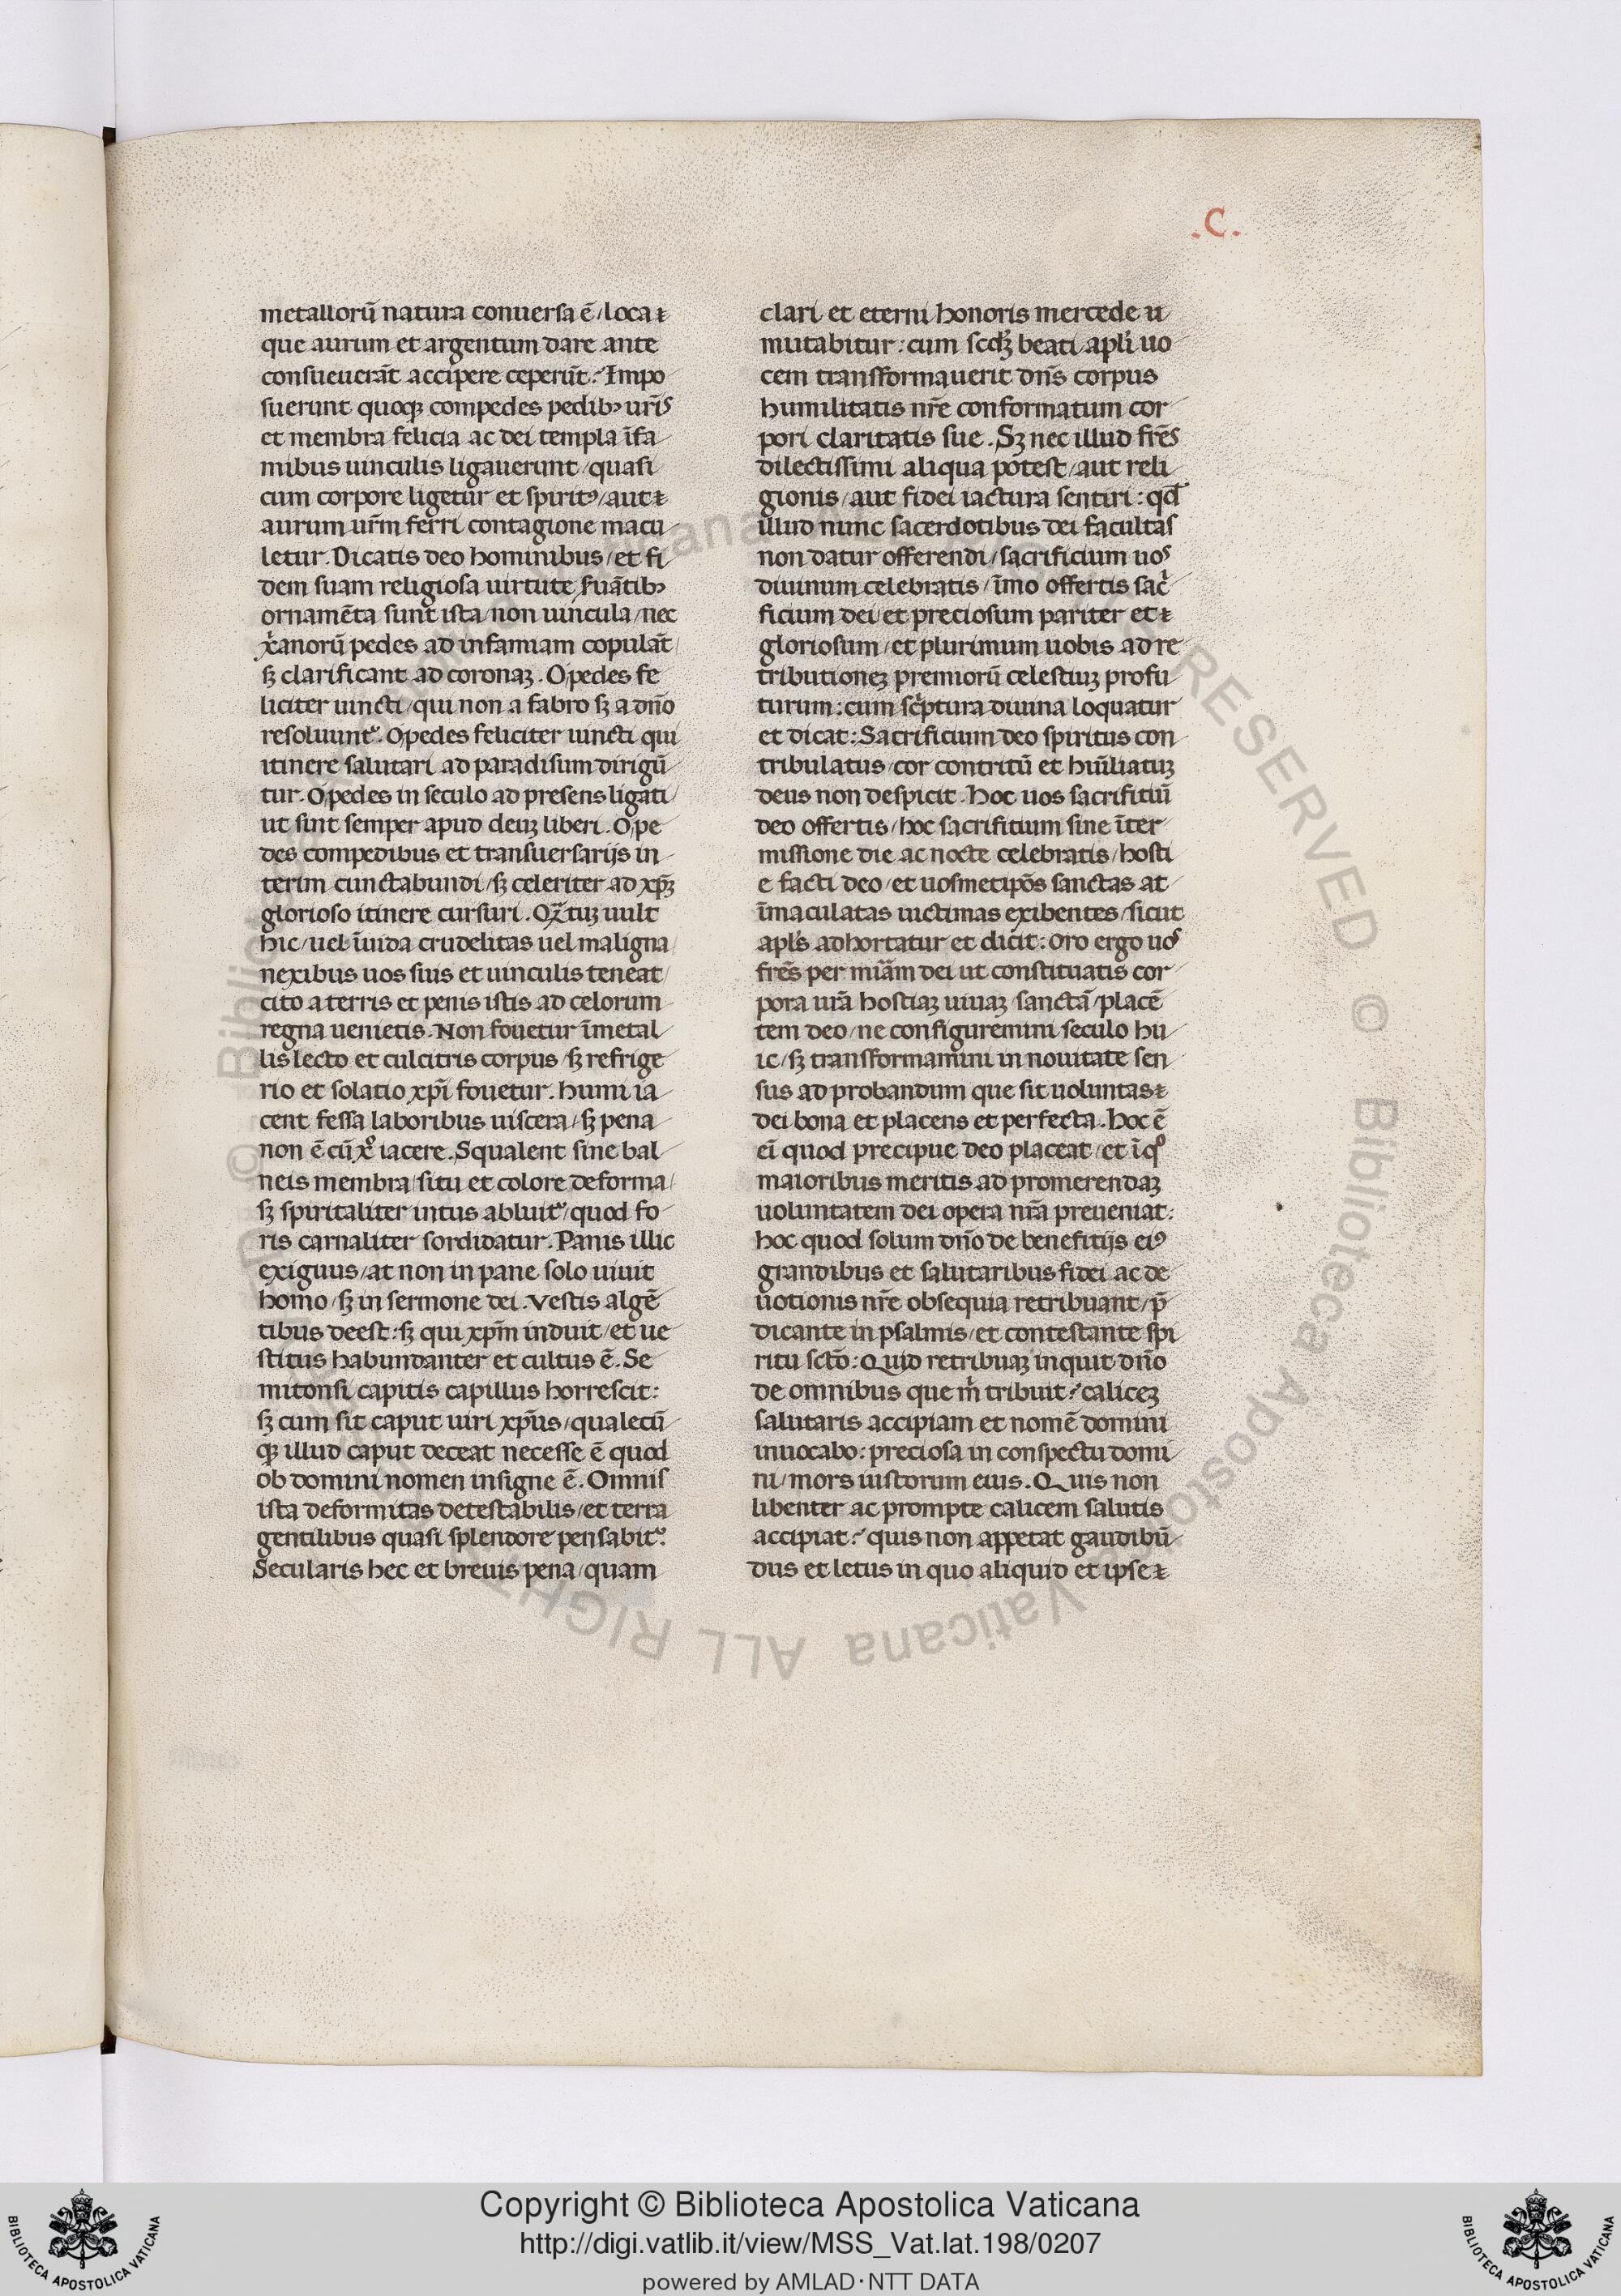 .C.
metallorū natura conuersa ē/loca
que aurum et argentum dare ante
consueuerāt accipere ceperūt: Impo
suerunt quoqꝫ compedes pedibꝰ ur̄is
et membra felicia ac dei templa īfa
mibus uinculis ligauerunt/quasi
cum corpore ligetur et spiritꝰ/aut
aurum ur̄m ferri contagione macu
letur. Dicatis deo hominibus/et fi
dem suam religiosa uirtute ẜuātibꝰ
ornamēta sunt ista/non uincula/nec
xr̄anorū pedes ad infamiam copulāt/
sꝫ clarificant ad coronaꝫ. O pedes fe
liciter uincti/qui non a fabro sꝫ a dn̄o
resoluunt᷑. O pedes feliciter uincti qui
itinere salutari ad paradisum dirigū
tur. O pedes in seculo ad presens ligati
ut sint semper apud deuꝫ liberi. O pe
des compedibus et transuersarijs in
terim cunctabundi/sꝫ celeriter ad xp̄ꝫ
glorioso itinere cursuri. Qꝫ̄tuꝫ uult
hic/uel īuida crudelitas uel maligna
nexibus uos suis et uinculis teneat
cito a terris et penis istis ad celorum
regna uenietis. Non fouetur īmetal
lis lecto et culcitris corpus/sꝫ refrige
rio et solatio xp̄i fouetur. Humi ia
cent fessa laboribus uiscera/sꝫ pena
non ē cū xº iacere. Squalent sine bal
neis membra/situ et colore deforma/
sꝫ spiritaliter intus abluit᷑/quod fo
ris carnaliter sordidatur. Panis illic
exiguus/at non in pane solo uiuit
homo/sꝫ in sermone dei. Vestis algē
tibus deest: sꝫ qui xp̄m induit/et ue
stitus habundanter et cultus ē. Se
mitonsi capitis capillus horrescit:
sꝫ cum sit caput uiri xp̄us/qualecū
qꝫ illud caput deceat necesse ē quod
ob domini nomen insigne ē. Omnis
ista deformitas detestabilis/et terra
gentilibus quasi splendore pensabit᷑.
Secularis hec et breuis pena/quam
clari et eterni honoris mercede u
mutabitur: cum scd̄ꝫ beati apl̄i uo
cem transformauerit dn̄s corpus
humilitatis nr̄e conformatum cor
pori claritatis sue. Sꝫ nec illud frēs
dilectissimi aliqua potest/aut reli
gionis/aut fidei iactura sentiri: qd̄
illud nunc sacerdotibus dei facultas
non datur offerendi/sacrificium uos
diuinum celebratis/īmo offertis sacͥ
ficium dei/et preciosum pariter et
gloriosum/et plurimum uobis ad re
tributioneꝫ premiorū celestiuꝫ profu
turum: cum scͥptura diuina loquatur
et dicat: Sacrificium deo spiritus con
tribulatus/cor contritū et hūiliatuꝫ
deus non despicit. Hoc uos sacrifitiū
deo offertis/hoc sacrifitium sine īter
missione die ac nocte celebratis/hosti
e facti deo/et uosmetipōs sanctas at
īmaculatas uictimas exibentes/sicut
apl̄s adhortatur et dicit: Oro ergo uos
frēs per miām dei ut constituatis cor
pora ur̄a hostiaꝫ uiuaꝫ/sanctā/placē
tem deo/ne configuremini seculo hu
ic/sꝫ transformamini in nouitate sen
sus ad probandum que sit uoluntas
dei bona et placens et perfecta. Hoc ē
ei quod precipue deo placeat/et ī qº
maioribus meritis ad promerendaꝫ
uoluntatem dei opera nr̄a preueniat:
hoc quod solum dn̄o de benefitijs eiꝰ
grandibus et salutaribus fidei ac de
uotionis nr̄e obsequia retribuant/p̄
dicante in psalmis/et contestante spi
ritu sctō: Quid retribuaꝫ inquit dn̄o
de omnibus que mͥ tribuit? caliceꝫ
salutaris accipiam et nomē domini
inuocabo: preciosa in conspectu domi
ni/mors iustorum eius. Quis non
libenter ac prompte calicem salutis
accipiat? quis non appetat gaudibū
dus et letus in quo aliquid et ipse
Copyright © Biblioteca Apostolica Vaticana
http://digi.vatlib.it/view/MSS_Vat.lat.198/0207
powered by AMLAD·NTT DATA
BIBLIOTECA APOSTOLICA VATICANA
BIBLIOTECA APOSTOLICA VATICANA